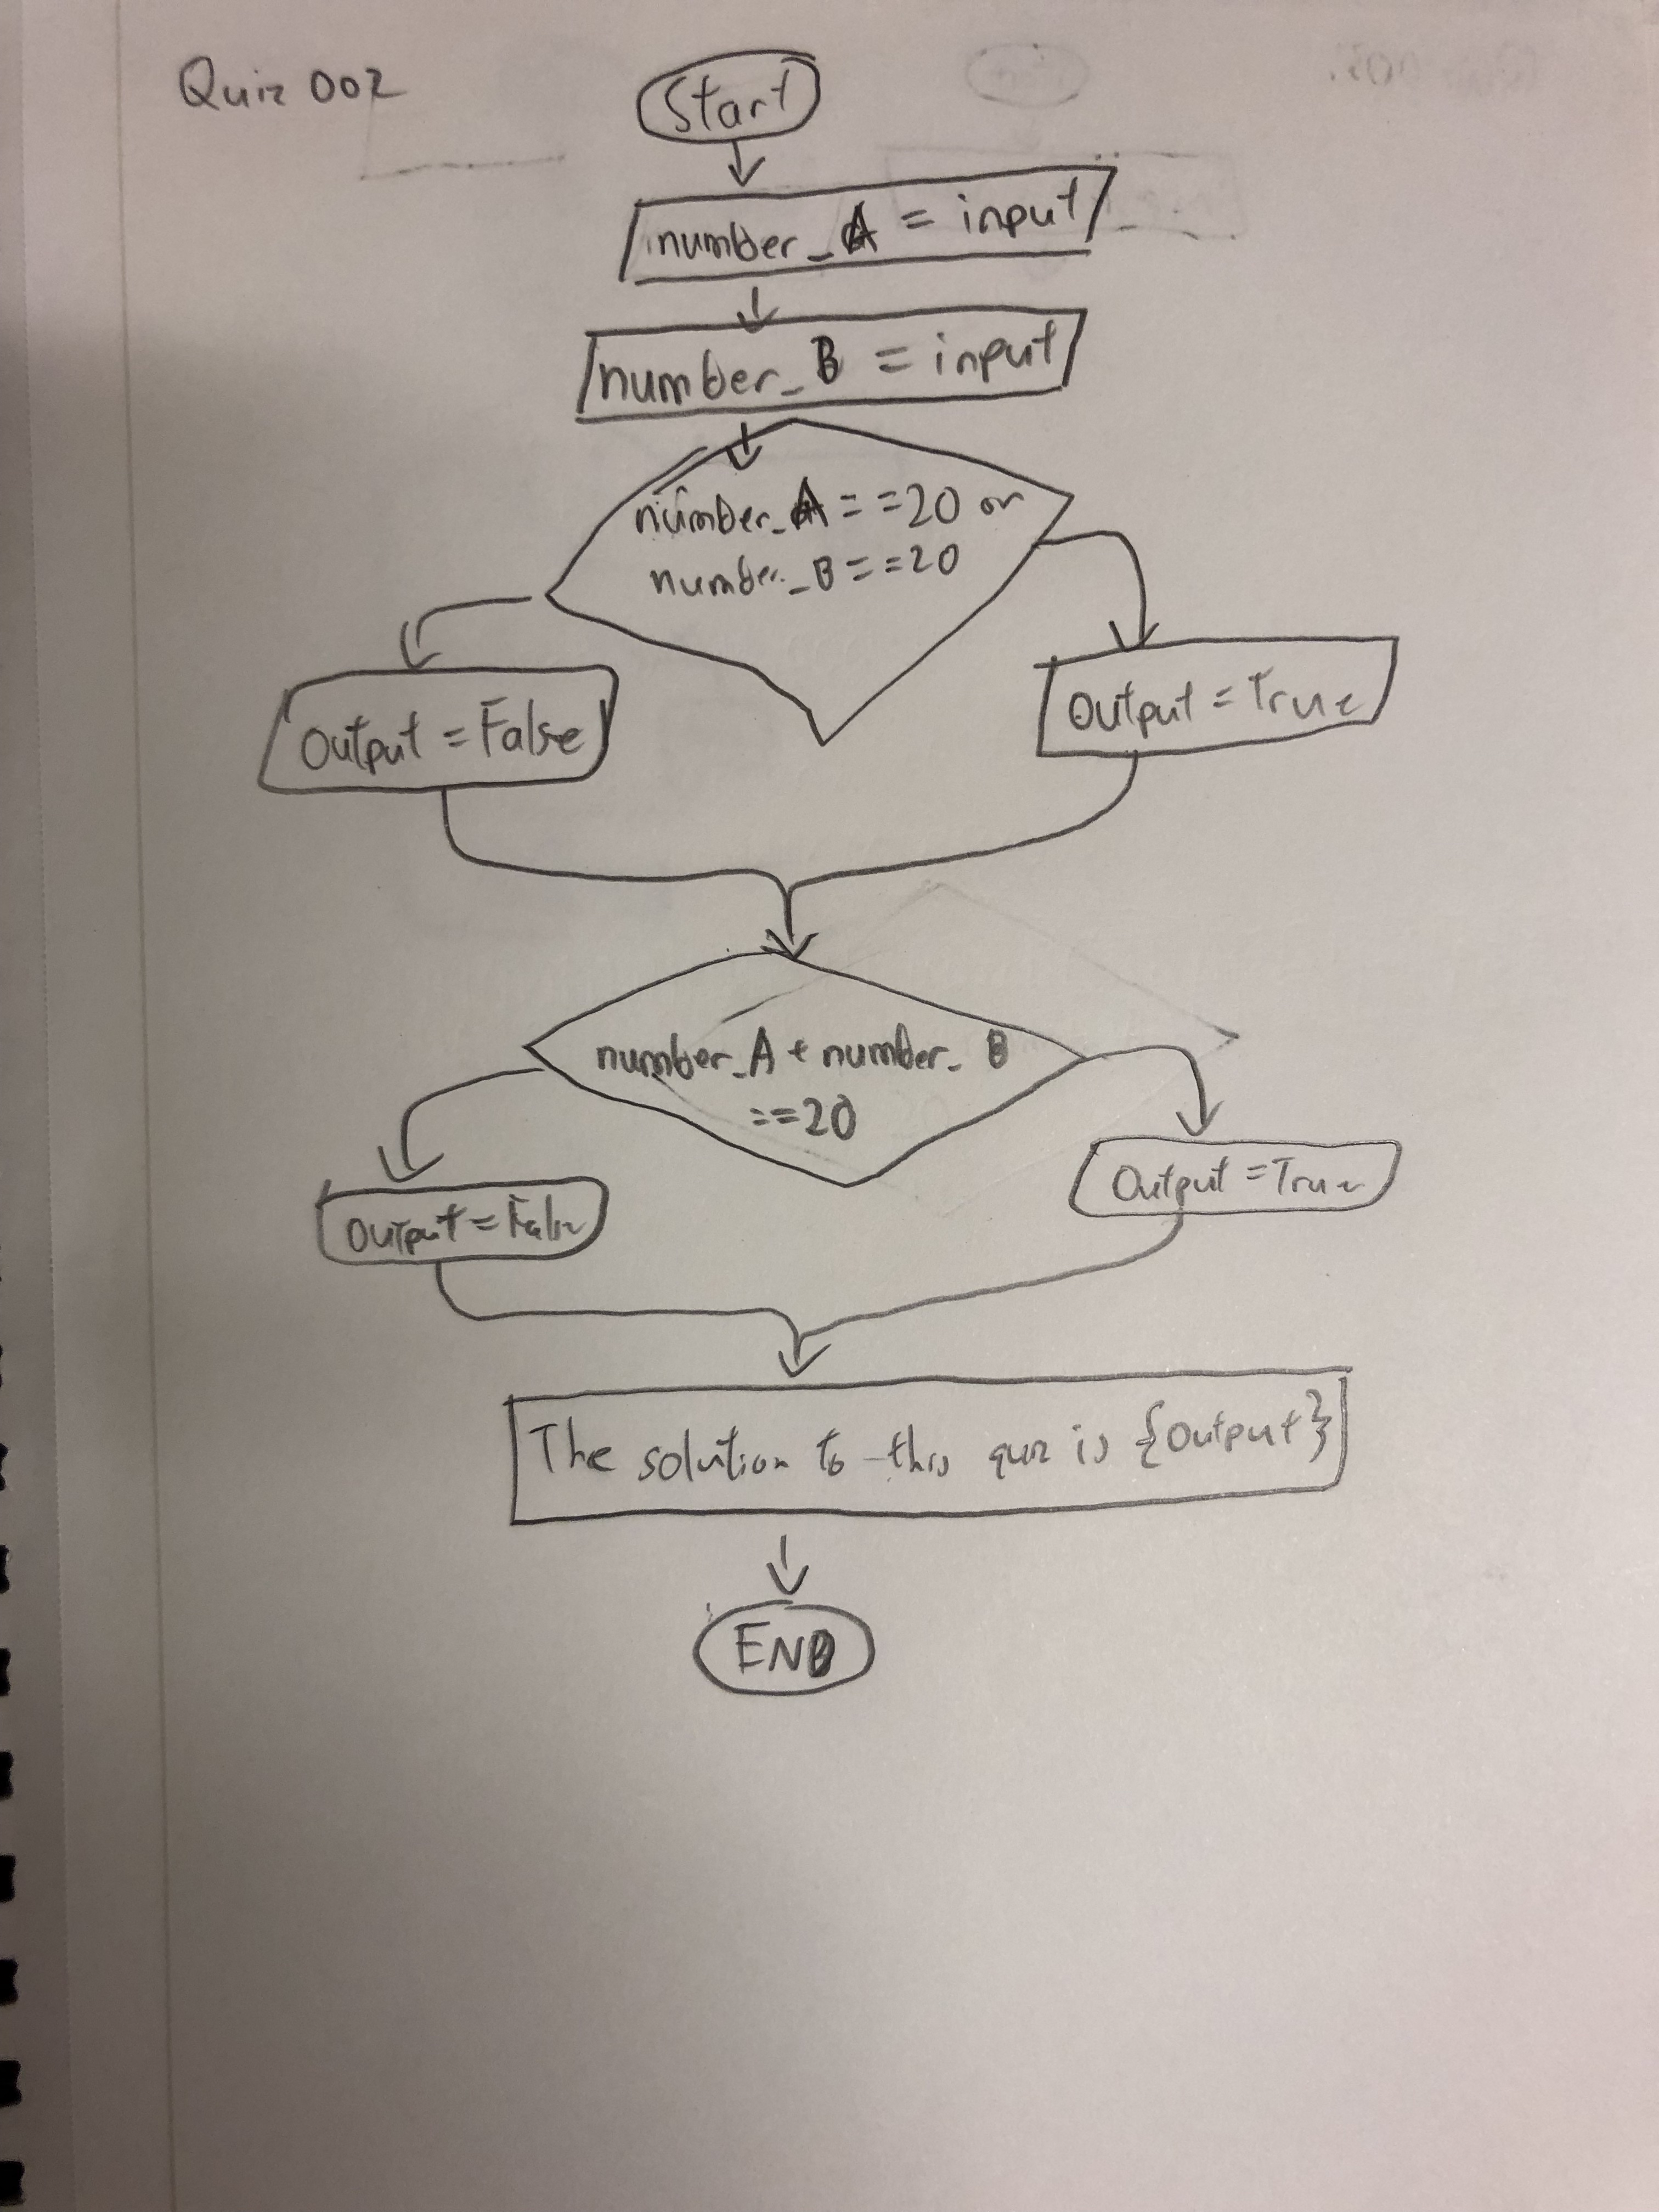 Quiz 002
Start
number_A = input
number_B = input
number_A==20 or
number_B==20
Output = False
Output = True
number_A + number_B
==20
Output = False
Output = True
The solution to this quiz is {Output}
END